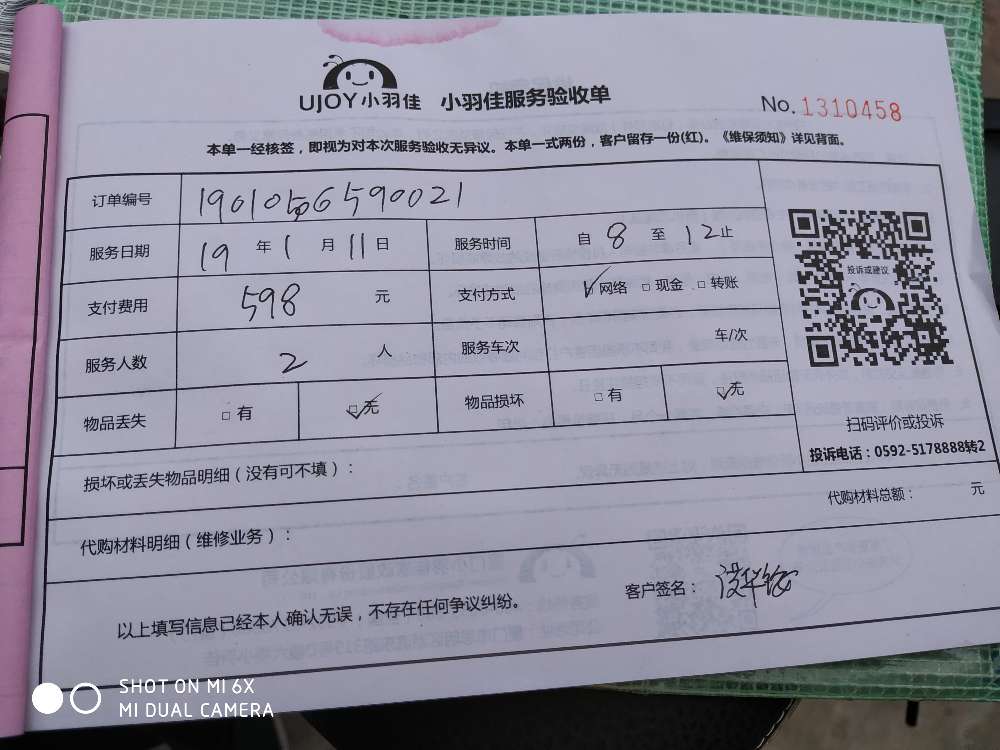 UJOY小羽佳 小羽佳服务验收单
No. 1310458
本单一经核签，即视为对本次服务验收无异议。本单一式两份，客户留存一份(红)。《维保须知》详见背面。
订单编号 1901056590021
服务日期 19 年 1 月 11 日 服务时间 自 8 至 12 止
支付费用 598 元 支付方式 ☑网络 □现金 □转账
服务人数 2 人 服务车次 车/次
物品丢失 □有 ☑无 物品损坏 □有 ☑无
投诉或建议
扫码评价或投诉
投诉电话：0592-5178888转2
损坏或丢失物品明细（没有可不填）：
代购材料总额： 元
代购材料明细（维修业务）：
客户签名：
以上填写信息已经本人确认无误，不存在任何争议纠纷。
SHOT ON MI 6X
MI DUAL CAMERA